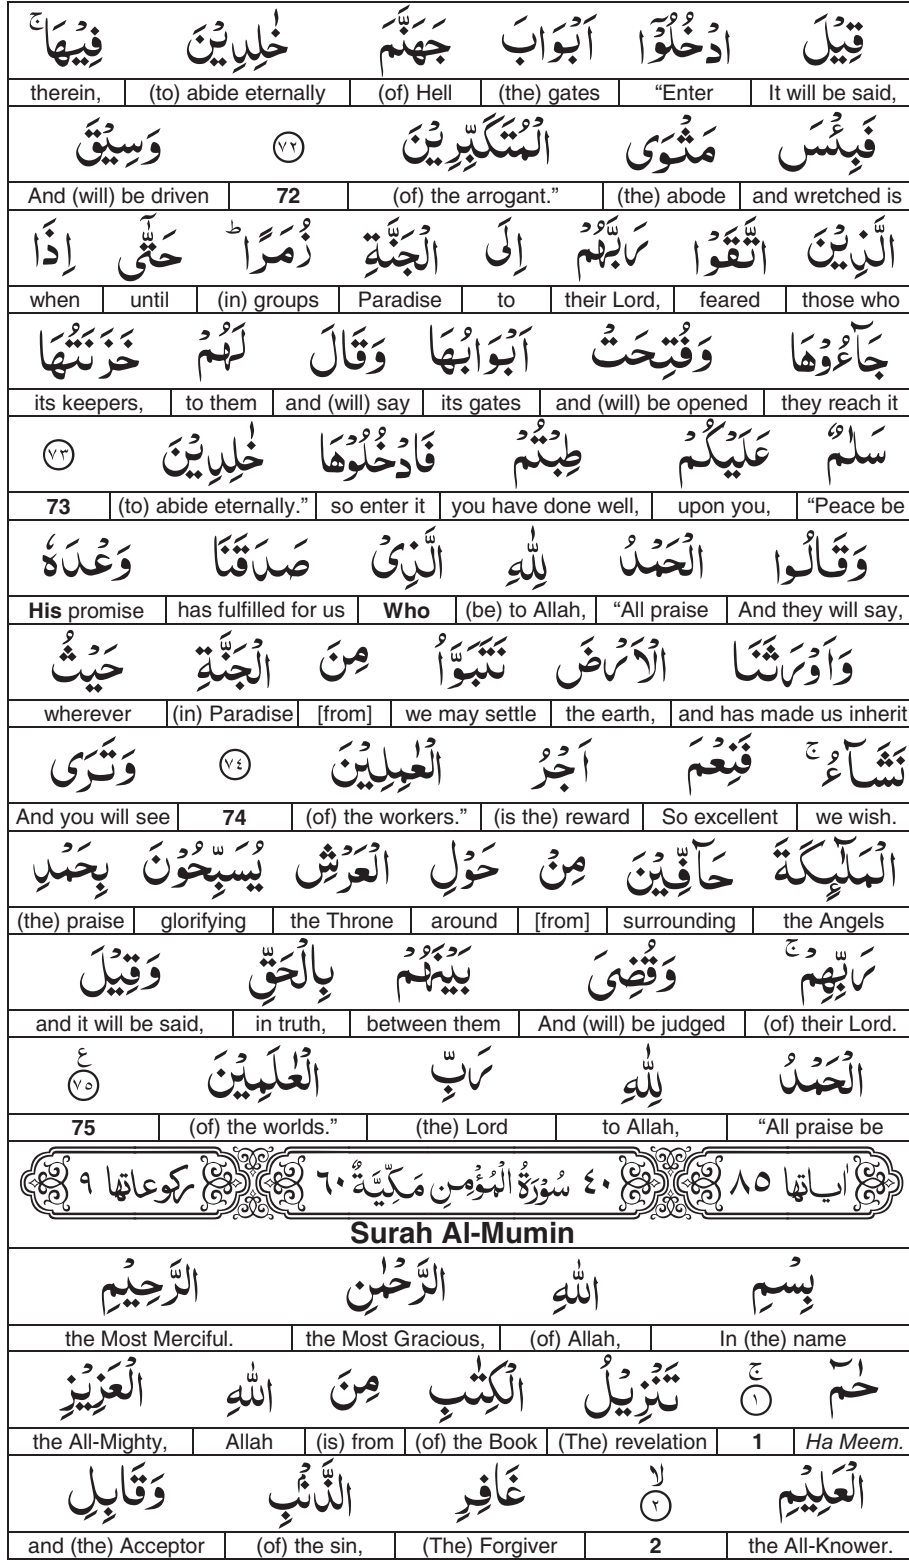 قِيْلَ ادْخُلُوْۤا اَبْوَابَ جَهَنَّمَ خٰلِدِيْنَ فِيْهَا ۚ
It will be said, “Enter (the) gates (of) Hell (to) abide eternally therein,
فَبِئْسَ مَثْوَى الْمُتَكَبِّرِيْنَ ۝۷۲ وَسِيْقَ
and wretched is (the) abode (of) the arrogant.” 72 And (will) be driven
الَّذِيْنَ اتَّقَوْا رَبَّهُمْ اِلَى الْجَنَّةِ زُمَرًا ؕ حَتّٰۤى اِذَا
those who feared their Lord, to Paradise (in) groups until when
جَآءُوْهَا وَفُتِحَتْ اَبْوَابُهَا وَقَالَ لَهُمْ خَزَنَتُهَا
they reach it and (will) be opened its gates and (will) say to them its keepers,
سَلٰمٌ عَلَيْكُمْ طِبْتُمْ فَادْخُلُوْهَا خٰلِدِيْنَ ۝۷۳
“Peace be upon you, you have done well, so enter it (to) abide eternally.” 73
وَقَالُوا الْحَمْدُ لِلّٰهِ الَّذِيْ صَدَقَنَا وَعْدَهٗ
And they will say, “All praise (be) to Allah, Who has fulfilled for us His promise
وَاَوْرَثَنَا الْاَرْضَ نَتَبَوَّاُ مِنَ الْجَنَّةِ حَيْثُ
and has made us inherit the earth, we may settle [from] (in) Paradise wherever
نَشَآءُ ۚ فَنِعْمَ اَجْرُ الْعٰمِلِيْنَ ۝۷۴ وَتَرَى
we wish. So excellent (is the) reward (of) the workers.” 74 And you will see
الْمَلٰٓئِكَةَ حَآفِّيْنَ مِنْ حَوْلِ الْعَرْشِ يُسَبِّحُوْنَ بِحَمْدِ
the Angels surrounding [from] around the Throne glorifying (the) praise
رَبِّهِمْ ۚ وَقُضِيَ بَيْنَهُمْ بِالْحَقِّ وَقِيْلَ
(of) their Lord. And (will) be judged between them in truth, and it will be said,
الْحَمْدُ لِلّٰهِ رَبِّ الْعٰلَمِيْنَ ۝۷۵ ع
“All praise be to Allah, (the) Lord (of) the worlds.” 75
اٰیاتها ۸۵ ۴۰ سُوْرَةُ الْمُؤْمِنِ مَكِّيَّةٌ ۶۰ ركوعاتها ۹
Surah Al-Mumin
بِسْمِ اللّٰهِ الرَّحْمٰنِ الرَّحِيْمِ
In (the) name (of) Allah, the Most Gracious, the Most Merciful.
حٰمٓ ۝۱ ۚ تَنْزِيْلُ الْكِتٰبِ مِنَ اللّٰهِ الْعَزِيْزِ
Ha Meem. 1 (The) revelation (of) the Book (is) from Allah the All-Mighty,
الْعَلِيْمِ ۝۲ ۙ غَافِرِ الذَّنْۢبِ وَقَابِلِ
the All-Knower. 2 (The) Forgiver (of) the sin, and (the) Acceptor